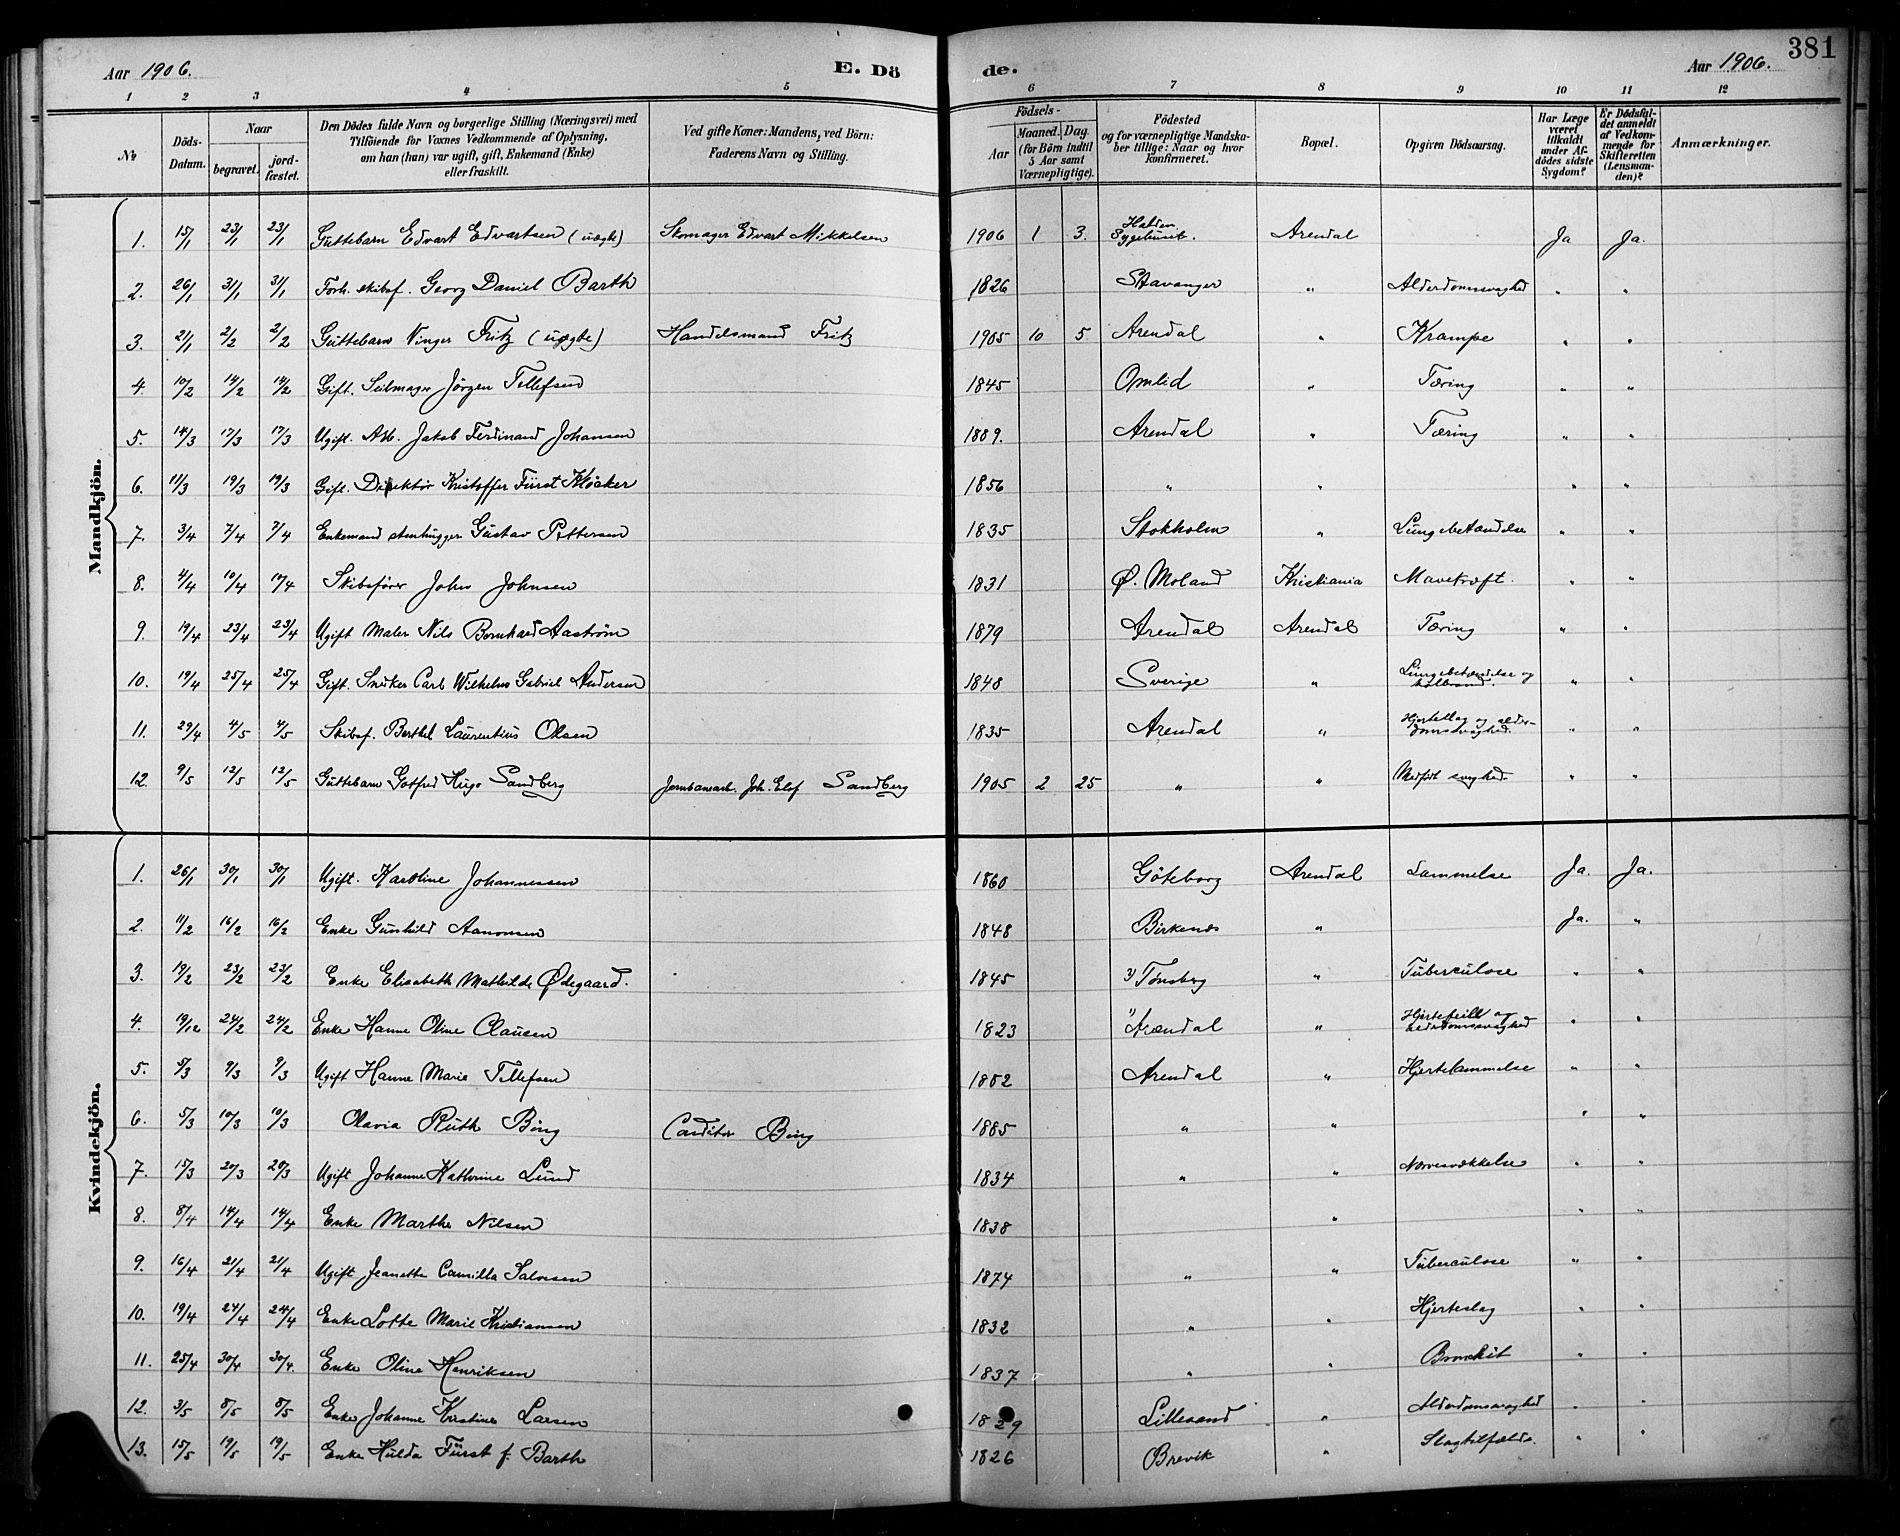 Aar 1906. E. Dö de. Aar 1906. 381
1 2 3 4 5 6 7 8 9 10 11 12
No
Döds-Datum.
Naar
begravet. jordfæstet.
Den Dödes fulde Navn og borgerlige Stilling (Næringsvei) med
Tilföiende for Voxnes Vedkommende af Oplysning,
om han (hun) var ugift, gift, Enkemand (Enke)
eller fraskilt.
Ved gifte Koner: Mandens, ved Börn:
Faderens Navn og Stilling.
Födsels-
Aar
Maaned. Dag.
(for Börn indtil
5 Aar samt
Værnepligtige).
Födested
og for værnepligtige Mandska-
ber tillige: Naar og hvor
konfirmeret.
Bopæl.
Opgiven Dödsaarsag.
Har Læge
været
tilkaldt
under Af-
dödes sidste
Sygdom?
Er Dödsfal-
det anmeldt
af Vedkom-
mende for
Skifteretten
(Lensman-
den)?
Anmærkninger.
Mandkjön.
1. 15/1 23/1 23/1 Guttebarn Edvart Edvartsen (uægte) Skomager Edvart Mikkelsen 1906 1 3. Halden Sygehuset. Arendal Ja Ja.
2. 26/1 31/1 31/1 Forh. skibsf. Georg Daniel Barth 1826 Stavanger " Alderdomssvaghed " "
3. 21/1 2/2 2/2 Guttebarn Vinger Fritz (uægte) Handelsmand Fritz 1905 10 5 Arendal " Krampe " "
4. 10/2 14/2 14/2 Gift. Seilmager Jörgen Tellefsen 1845 Omlid " Tæring " "
5. 14/3 17/3 17/3 Ugift. Arb. Jakob Ferdinand Johansen 1889. Arendal " Tæring " "
6. 11/3 19/3 19/3 Gift. Direktör Kristoffer Fürst Klöcker 1856 " " " "
7. 3/4 7/4 7/4 Enkemand stenhugger Gustav Pettersen 1835 Stokholm " Lungebetændelse " "
8. 4/4 10/4 10/4 Skibsförer John Johnsen 1831 Ø. Moland Kristiania Mavekræft. " "
9. 19/4 23/4 23/4 Ugift Maler Nils Bernhard Aaström 1879 Arendal Arendal Tæring " "
10. 19/4 25/4 25/4 Gift. Snidker Carl Wilhelm Gabriel Andersen 1848 Sverige " Lungebetændelse og kolbrand. " "
11. 29/4 4/5 4/5 Skibsf. Berthel Laurentius Olsen 1835 Arendal " Hjerteslag og alderdomssvaghed. " "
12. 9/5 12/5 12/5 Guttebarn Gotfred Hugo Sandberg Jernbanearb. Joh. Elof Sandberg 1905 2 25 " " Medfödt svaghed " "
Kvindekjön.
1. 26/1 30/1 30/1 Ugift. Karoline Johannessen 1860 Göteborg Arendal Lammelse Ja. Ja.
2. 11/2 16/2 16/2 Enke Gunhild Aanonsen 1848 Birkenes " Ja. "
3. 19/2 23/2 23/2 Enke Elisabeth Mathilde Ødegaard. 1845 Tönsberg " Tuberculose " "
4. 19/12 24/2 24/2 Enke Hanne Oline Clausen 1823 Arendal " Hjertefeil og alderdomssvaghed " "
5. 5/3 9/3 9/3 Ugift Hanne Marie Tellefsen 1852 Arendal " Hjertelammelse " "
6. 5/3 10/3 10/3 Olavia Ruth Bing Conditor Bing 1885 " " " "
7. 15/3 20/3 20/3 Ugift Johanne Kathrine Lund 1834 " " Nervesvækkelse " "
8. 8/4 14/4 14/4 Enke Marthe Nilsen 1838 " " "
9. 16/4 21/4 21/4 Ugift Jeanette Camilla Salvesen 1874 " " Tuberculose " "
10. 19/4 24/4 24/4 Enke Lotte Marie Kristiansen 1832 " " Hjerteslag " "
11. 25/4 30/4 30/4. Enke Oline Henriksen 1837 " " Bronchit " "
12. 3/5 8/5 8/5 Enke Johanne Kristine Larsen 1829 Lillesand " Alderdomssvaghed " "
13. 15/5 19/5 19/5 Enke Hulda Fürst f. Barth 1826 Brevik " Slagtilfælde. " "